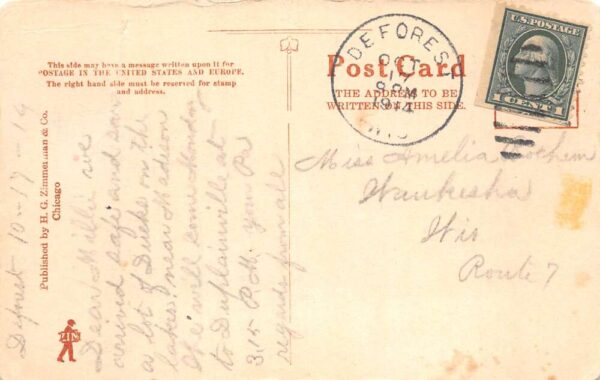 This side may have a message written upon it for
POSTAGE IN THE UNITED STATES AND EUROPE.
The right hand side must be reserved for stamp
and address.
Post Card
THE ADDRESS TO BE
WRITTEN ON THIS SIDE.
DE FOREST
OCT
17
1914
WIS
U.S. POSTAGE
1 CENT 1
Miss Amelia
Waukesha
Wis
Route 7
Published by H. G. Zimmerman & Co.
Chicago
Deforest 10-17-14
Dear Millie we
arrived safe and saw
a lot of Ducks on the
lakes near Madison
We will come Monday
to Duplainville at
3.15 P.M. your Pa
regards from all